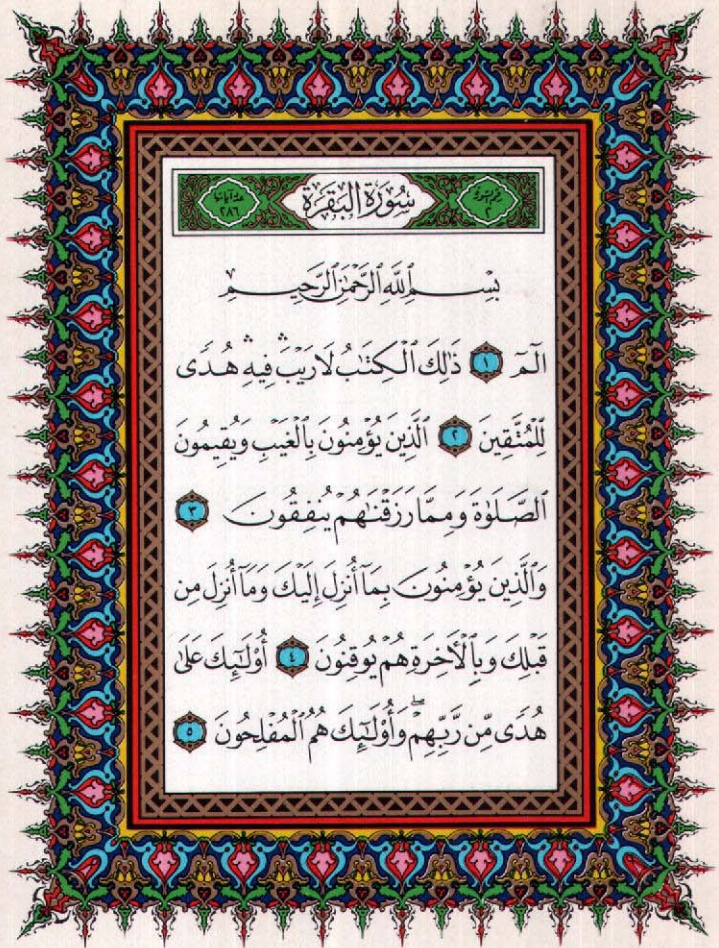 رقم السورة ٢
سُورَةُ الْبَقَرَةِ
عدد آياتها ٢٨٦
بِسْمِ ٱللَّهِ ٱلرَّحْمَٰنِ ٱلرَّحِيمِ
الٓمٓ ١ ذَٰلِكَ ٱلْكِتَٰبُ لَا رَيْبَۛ فِيهِۛ هُدًى
لِّلْمُتَّقِينَ ٢ ٱلَّذِينَ يُؤْمِنُونَ بِٱلْغَيْبِ وَيُقِيمُونَ
ٱلصَّلَوٰةَ وَمِمَّا رَزَقْنَٰهُمْ يُنفِقُونَ ٣
وَٱلَّذِينَ يُؤْمِنُونَ بِمَآ أُنزِلَ إِلَيْكَ وَمَآ أُنزِلَ مِن
قَبْلِكَ وَبِٱلْءَاخِرَةِ هُمْ يُوقِنُونَ ٤ أُو۟لَٰٓئِكَ عَلَىٰ
هُدًى مِّن رَّبِّهِمْۖ وَأُو۟لَٰٓئِكَ هُمُ ٱلْمُفْلِحُونَ ٥